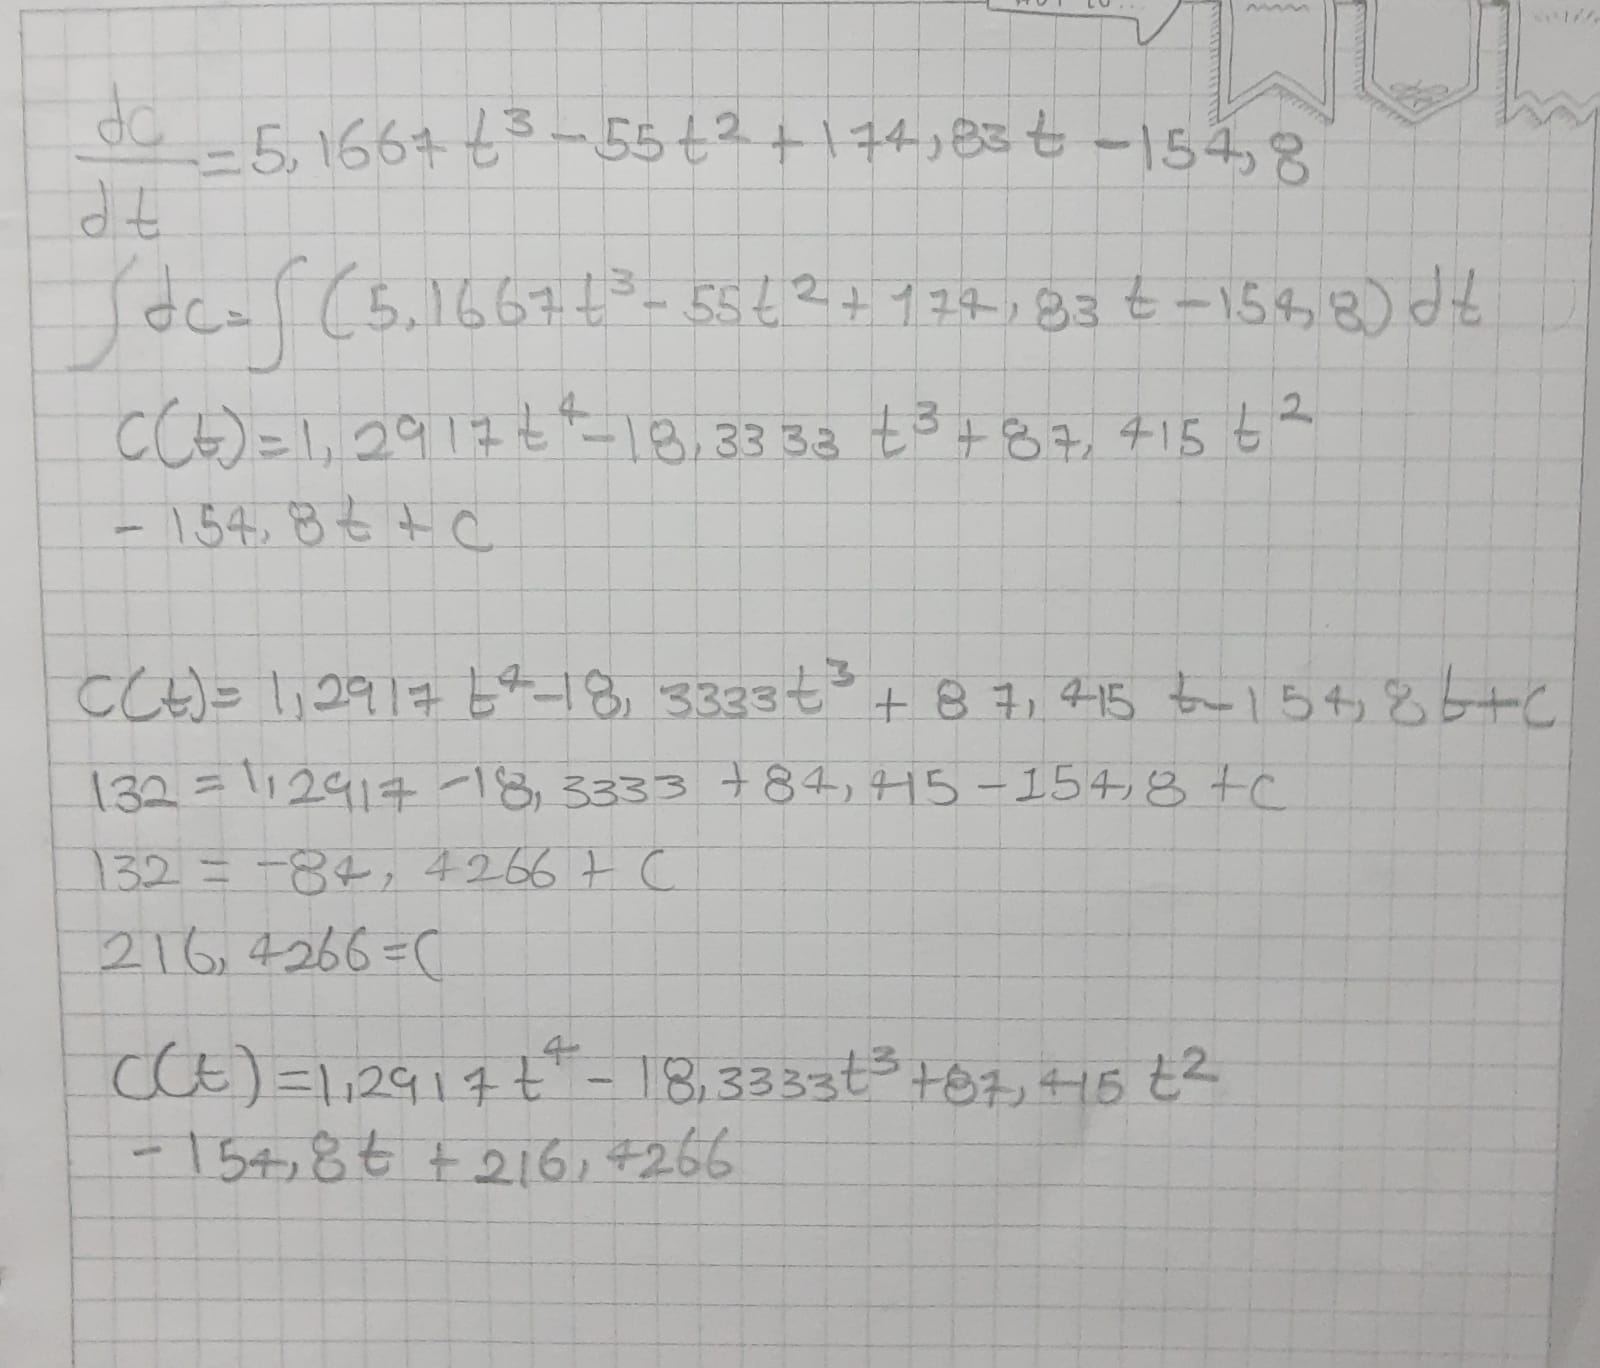 dc/dt = 5,1667 t³ - 55 t² + 174,83 t - 154,8
∫ dc = ∫ (5,1667 t³ - 55 t² + 174,83 t - 154,8) dt
C(t) = 1,2917 t⁴ - 18,3333 t³ + 87,415 t²
- 154,8 t + C
C(t) = 1,2917 t⁴ - 18,3333 t³ + 87,415 t - 154,8 t + C
132 = 1,2917 - 18,3333 + 84,415 - 154,8 + C
132 = -84,4266 + C
216,4266 = C
C(t) = 1,2917 t⁴ - 18,3333 t³ + 87,415 t²
- 154,8 t + 216,4266